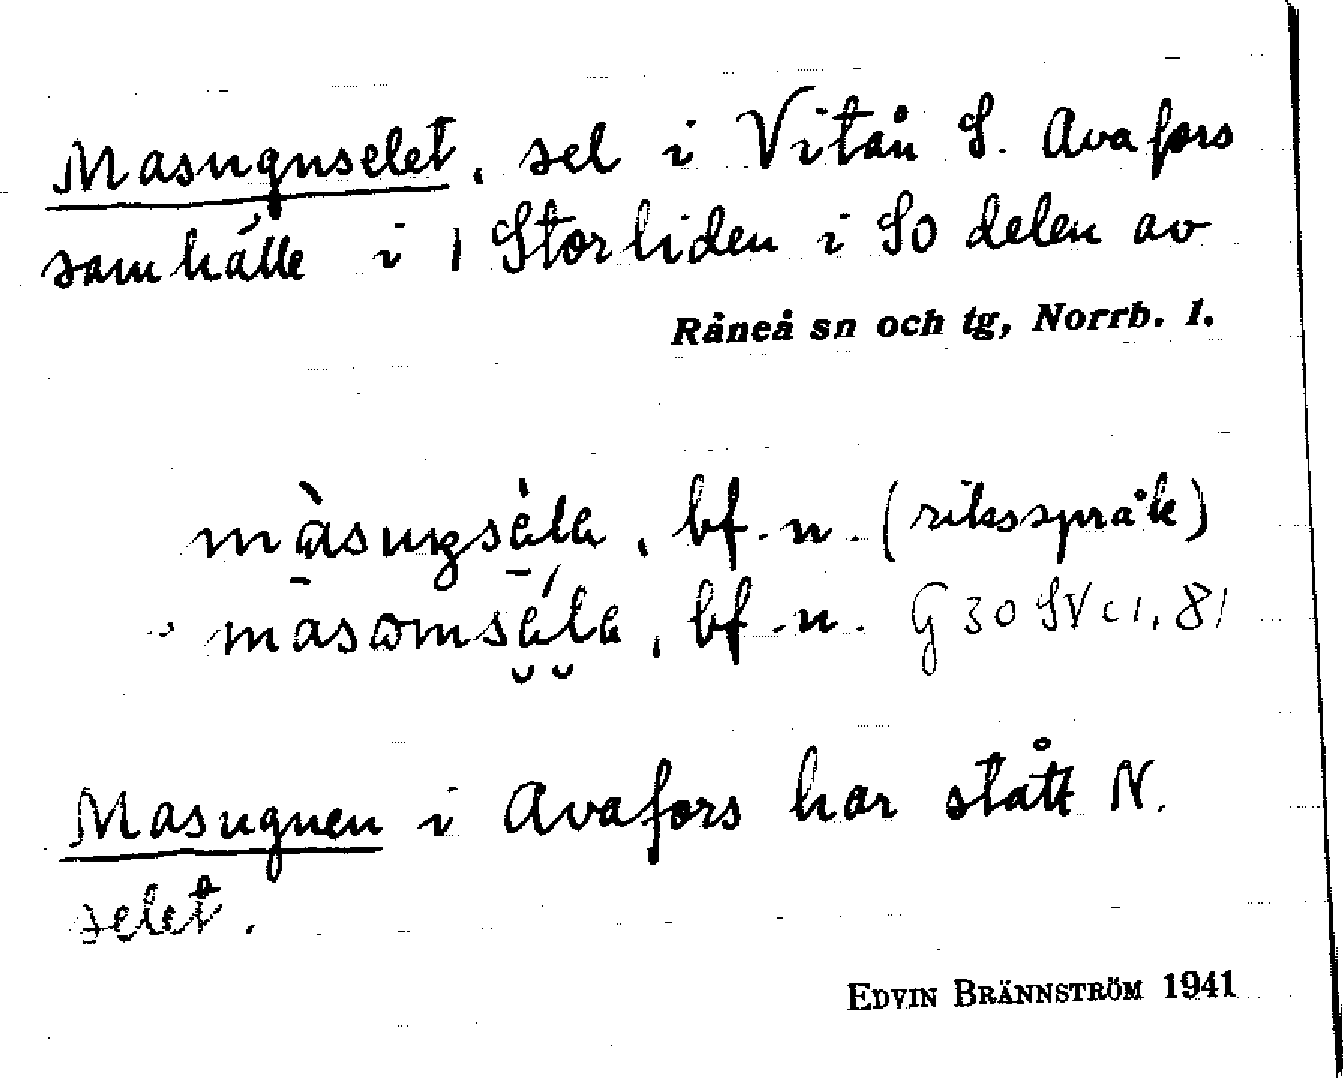 Masugnselet, sel i Vitån S. Avafors
samhälle i 1 Storliden i SO delen av
Råneå sn och tg, Norrb. l.
bf. n. (riksspråk)
bf. n. G 30 SV c1, 81
Masugnen i Avafors har stått N.
selet.
EDVIN BRÄNNSTRÖM 1941